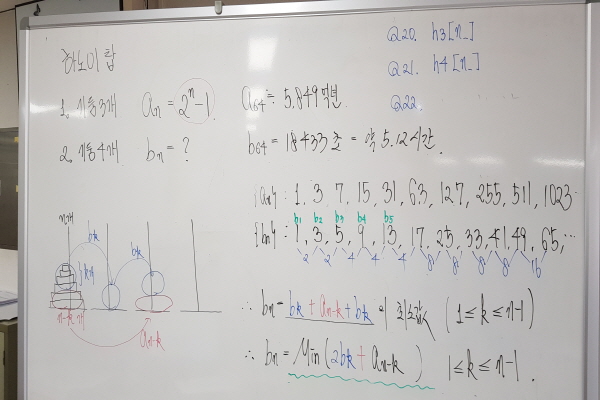 하노이 탑
1. 기둥 3개 aₙ = 2ⁿ-1
2. 기둥 4개 bₙ = ?
Q20. h3[n_]
Q21. h4[n_]
Q22.
a₆₄ ≒ 5,849억년.
b₆₄ = 18433초 = 약 5.12시간.
{aₙ} : 1, 3, 7, 15, 31, 63, 127, 255, 511, 1023
b₁ b₂ b₃ b₄ b₅
{bₙ} : 1, 3, 5, 9, 13, 17, 25, 33, 41, 49, 65, …
2 2 4 4 4 8 8 8 8 16
n개
bk
bk
bk개
n-k 개
aₙ₋ₖ
∴ bₙ = bₖ + aₙ₋ₖ + bₖ 의 최솟값 (1 ≤ k ≤ n-1)
∴ bₙ = Min(2bₖ + aₙ₋ₖ) 1 ≤ k ≤ n-1.